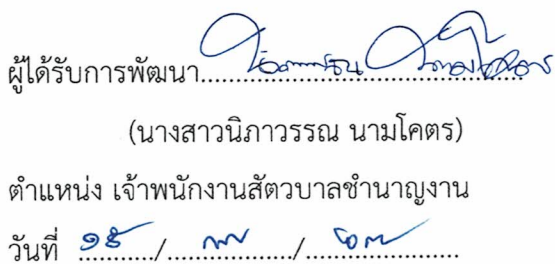 ผู้ได้รับการพัฒนา
(นางสาวนิภาวรรณ นามโคตร)
ตำแหน่ง เจ้าพนักงานสัตวบาลชำนาญงาน
วันที่ / /